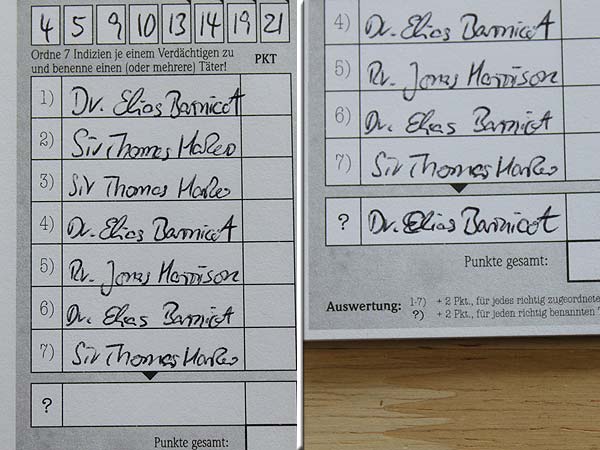 4 5 9 10 13 14 19 21
Ordne 7 Indizien je einem Verdächtigen zu
und benenne einen (oder mehrere) Täter!
PKT
1) Dr. Elias Barnicot
2) Sir Thomas Harko
3) Sir Thomas Harko
4) Dr. Elias Barnicot
5) Rv. Jonas Harrison
6) Dr. Elias Barnicot
7) Sir Thomas Harko
?
Punkte gesamt:
4) Dr. Elias Barnicot
5) Rv. Jonas Harrison
6) Dr. Elias Barnicot
7) Sir Thomas Harko
? Dr. Elias Barnicot
Punkte gesamt:
Auswertung: 1-7) + 2 Pkt., für jedes richtig zugeordnete
?) + 2 Pkt., für jeden richtig benannten